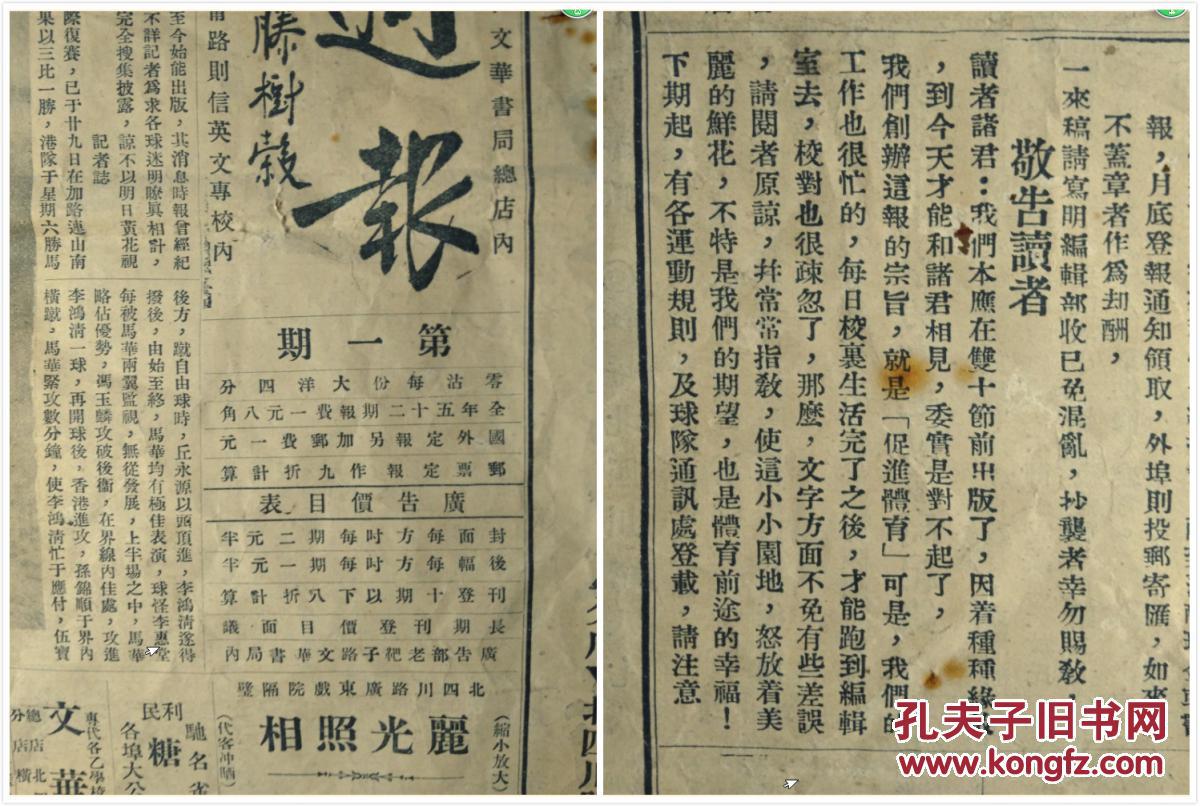 文華書局總店內
週報
滕樹榖
南路則信英文專校內
第一期
零沽每份大洋四分
全年五十二期報費一元八角
國外定報另加郵費一元
郵票定報作九折計算
廣告價目表
封面每方吋每期二元半
後幅每方吋每期一元半
刊登十期以下八折計算
長期刊登價目面議
廣告部老靶子路文華書局內
北四川路廣東戲院隔壁
(縮小放大)
麗光照相
(代客冲晒)
至今始能出版,其消息時報曾經紀
不詳記者爲求各球迷明瞭眞相計,
完全搜集披露,諒不以明日黃花視
記者誌
際復賽,已于廿九日在加路連山南
果以三比一勝,港隊于星期六勝馬
後方,蹴自由球時,丘永源以頭頂進,李鴻淸遂待
撥後,由始至終,馬華均有極佳表演,球怪李惠堂
每被馬華兩翼監視,無從發展,上半場之中,馬華
略佔優勢,馮玉麟攻破後衞,在界線內佳處,攻進
李鴻淸一球,再開球後,香港進攻,孫錦順于界內
橫蹴,馬華緊攻數分鐘,使李鴻淸忙于應付,伍寶
馳名
利民
糖
各埠大公
專代各乙學校
文華
總店
分店
報,月底登報通知領取,外埠則投郵寄匯,如來
不蓋章者作爲却酬,
一來稿請寫明編輯部收已免混亂,抄襲者幸勿賜敎,
敬告讀者
讀者諸君:我們本應在雙十節前出版了,因着種種緣故
,到今天才能和諸君相見,委實是對不起了,
我們創辦這報的宗旨,就是「促進體育」可是,我們的
工作也很忙的,每日校裏生活完了之後,才能跑到編輯
室去,校對也很疎忽了,那麼,文字方面不免有些差誤
,請閱者原諒,幷常常指敎,使這小小園地,怒放着美
麗的鮮花,不特是我們的期望,也是體育前途的幸福!
下期起,有各運動規則,及球隊通訊處登載,請注意
孔夫子旧书网
www.kongfz.com